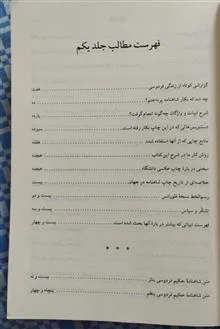 فهرست مطالب جلد یکم
گزارشی کوتاه از زندگی فردوسی هفت
چه شد که بکار شاهنامه پرداختم؟ ده
شرح ابیات و واژگان چگونه انجام گرفت؟ یازده
دستنویس‌هائی که در این چاپ بکار رفته است سیزده
منابع چاپی که از آنها استفاده شده
روش کار ما در شرح این کتاب هجده
سخنی در بارهٔ چاپ عکسی دانشگاه هجده
خلاصه‌ای از تاریخ چاپ شاهنامه در جهان بیست
رسم‌الخط نسخهٔ فلورانس بیست و دو
تشکر و سپاس بیست و سه
فهرست ابیاتی که بیشتر در بارهٔ آنها بحث شده است بیست و چهار
* * *
متن شاهنامهٔ حکیم فردوسی بنثر بیست و نه
متن شاهنامهٔ حکیم فردوسی بنظم پنجاه و چهار